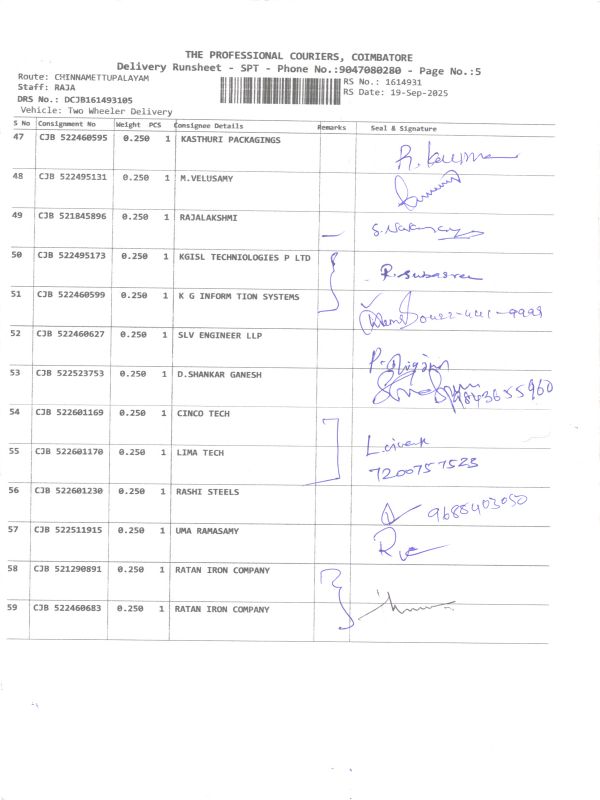 THE PROFESSIONAL COURIERS, COIMBATORE
Delivery Runsheet - SPT - Phone No.:9047080280 - Page No.:5
Route: CHINNAMETTUPALAYAM
Staff: RAJA
DRS No.: DCJB161493105
Vehicle: Two Wheeler Delivery
RS No.: 1614931
RS Date: 19-Sep-2025
S No Consignment No Weight PCS Consignee Details Remarks Seal & Signature
47 CJB 522460595 0.250 1 KASTHURI PACKAGINGS
48 CJB 522495131 0.250 1 M.VELUSAMY
49 CJB 521845896 0.250 1 RAJALAKSHMI
50 CJB 522495173 0.250 1 KGISL TECHNIOLOGIES P LTD R. Subasree
51 CJB 522460599 0.250 1 K G INFORM TION SYSTEMS
52 CJB 522460627 0.250 1 SLV ENGINEER LLP
53 CJB 522523753 0.250 1 D.SHANKAR GANESH 9843655960
54 CJB 522601169 0.250 1 CINCO TECH
55 CJB 522601170 0.250 1 LIMA TECH 7200757523
56 CJB 522601230 0.250 1 RASHI STEELS 9688403050
57 CJB 522511915 0.250 1 UMA RAMASAMY
58 CJB 521290891 0.250 1 RATAN IRON COMPANY
59 CJB 522460683 0.250 1 RATAN IRON COMPANY